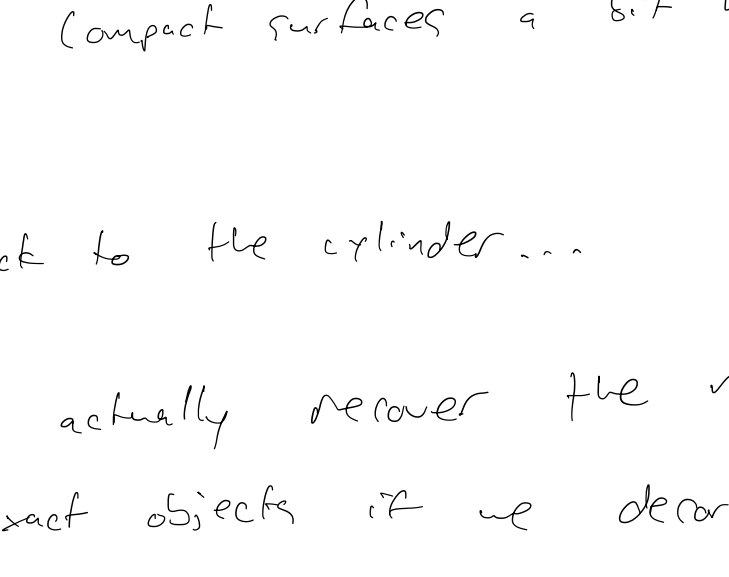 Compact surfaces a bit
to the cylinder...
actually recover the
objects if we